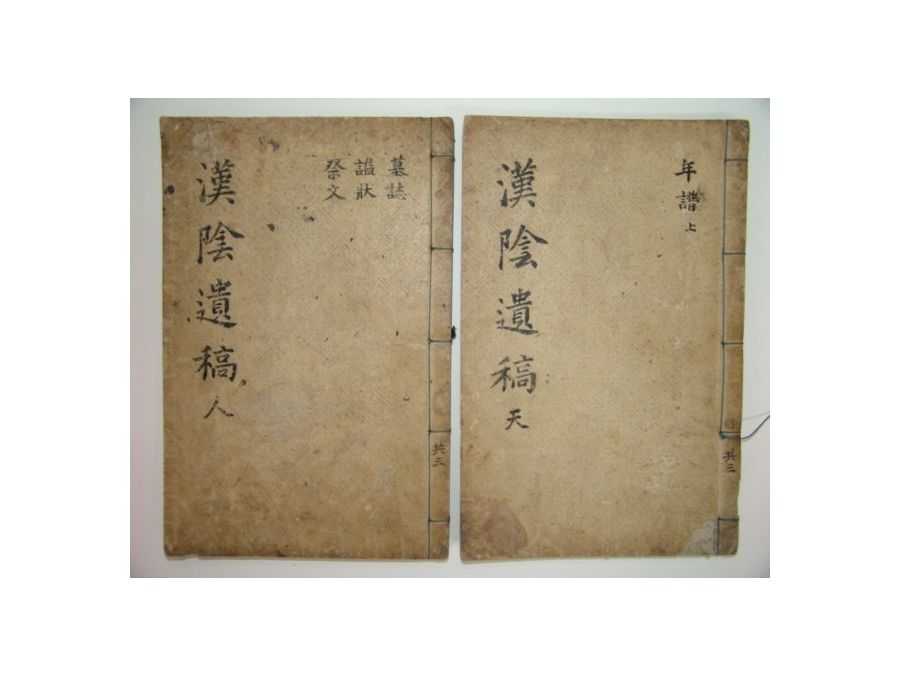 年譜上
漢陰遺稿 天
共三
墓誌
諡狀
祭文
漢陰遺稿 人
共三